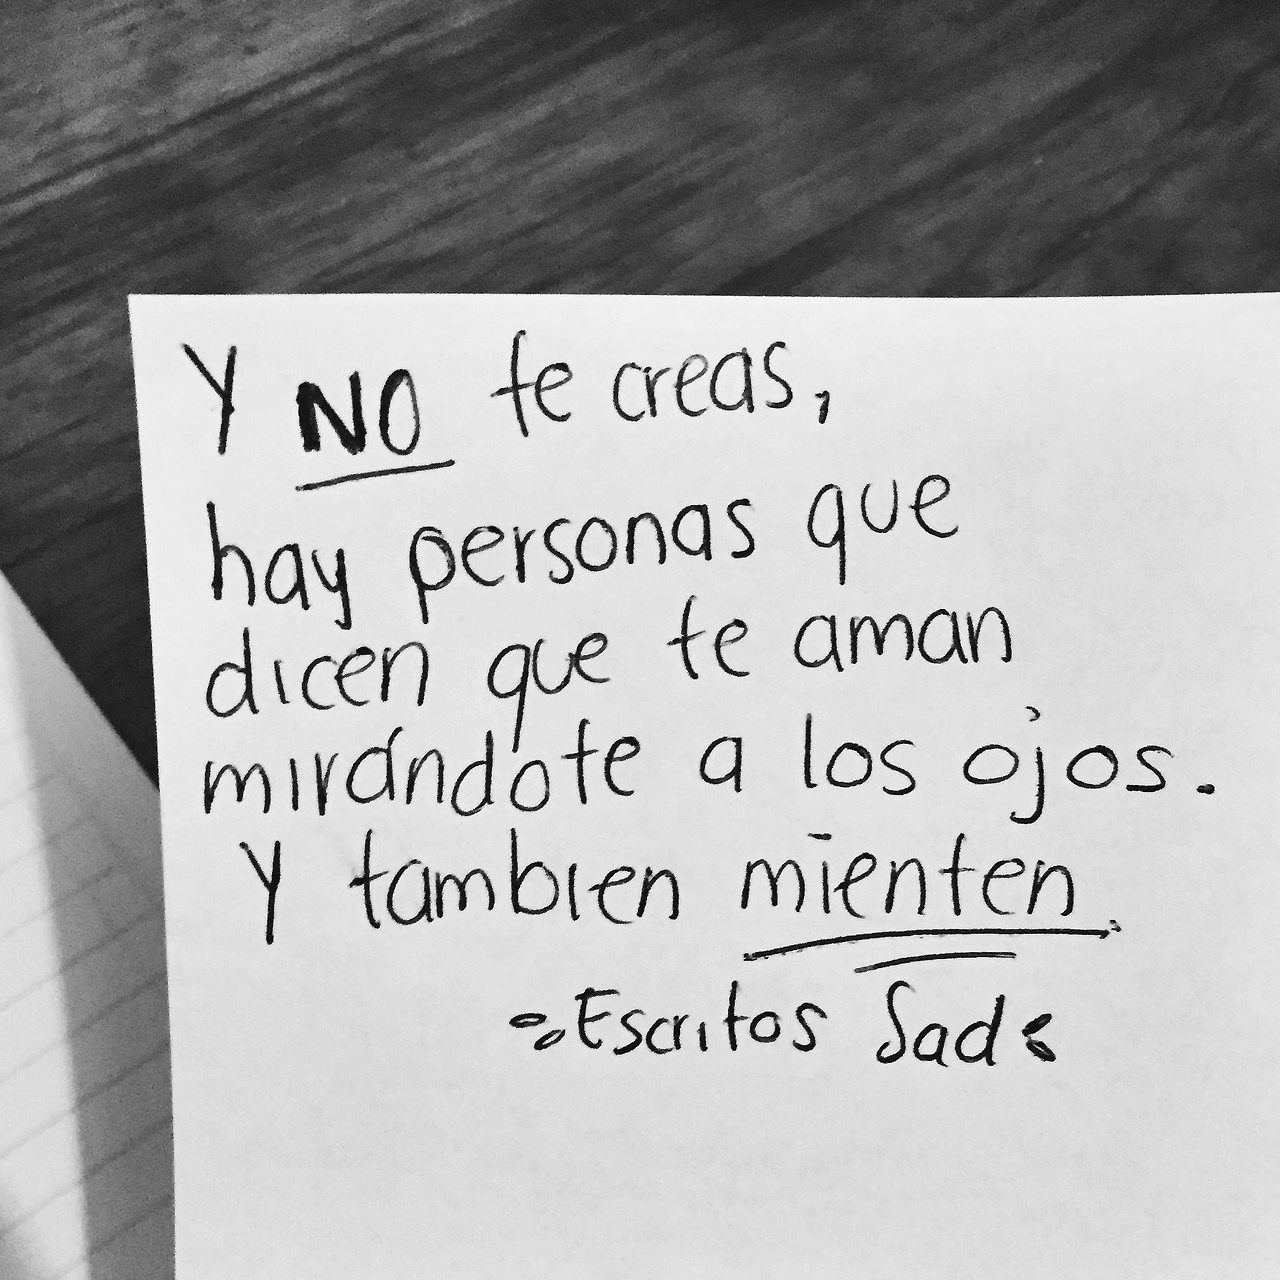 Y NO te creas,
hay personas que
dicen que te aman
mirándote a los ojos.
Y tambien mienten.
Escritos Sad